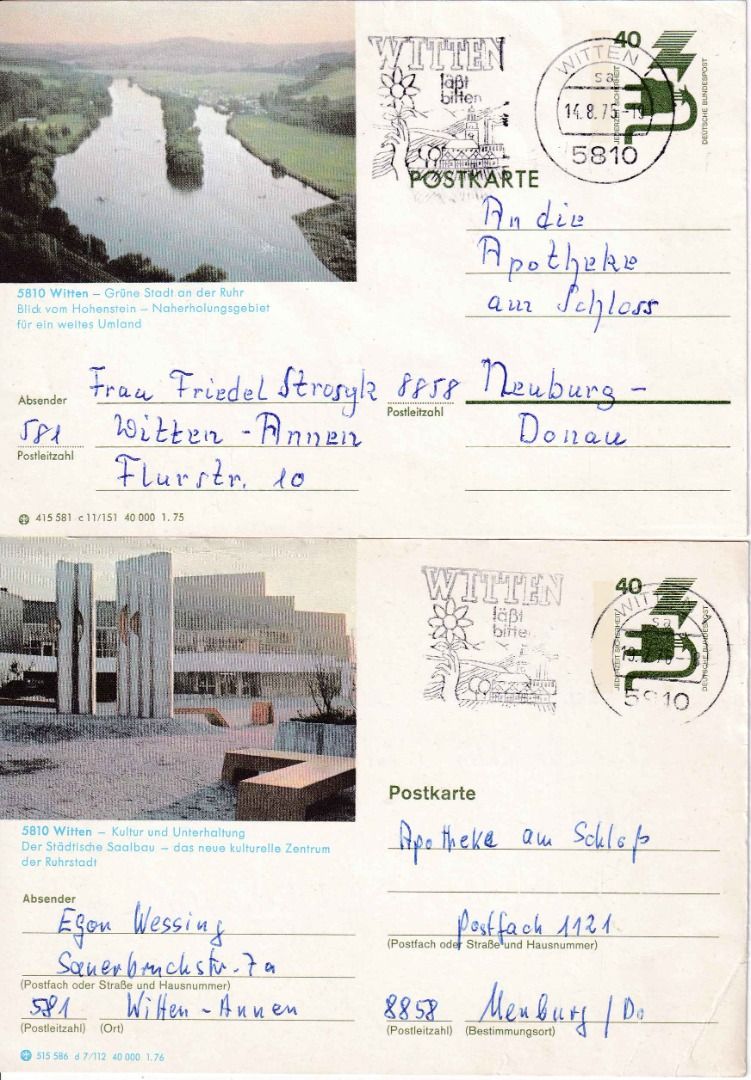 WITTEN
läßt
bitten
WITTEN
sa
14.8.75-19
5810
40
JEDERZEIT SICHERHEIT
DEUTSCHE BUNDESPOST
POSTKARTE
An die
Apotheke
am Schloss
5810 Witten – Grüne Stadt an der Ruhr
Blick vom Hohenstein – Naherholungsgebiet
für ein weites Umland
Absender
Frau Friedel Strosyk
581
Postleitzahl
Witten-Annen
Flurstr. 10
8858
Postleitzahl
Neuburg-
Donau
415 581 c 11/151 40 000 1.75
WITTEN
läßt
bitten
WITTEN
sa
5810
40
JEDERZEIT SICHERHEIT
DEUTSCHE BUNDESPOST
5810 Witten – Kultur und Unterhaltung
Der Städtische Saalbau – das neue kulturelle Zentrum
der Ruhrstadt
Postkarte
Apotheke am Schloß
Postfach 1121
(Postfach oder Straße und Hausnummer)
Absender
Egon Wessing
Sauerbruchstr. 7a
(Postfach oder Straße und Hausnummer)
581 Witten-Annen
(Postleitzahl) (Ort)
8858 Neuburg/Do
(Postleitzahl) (Bestimmungsort)
515 586 d 7/112 40 000 1.76